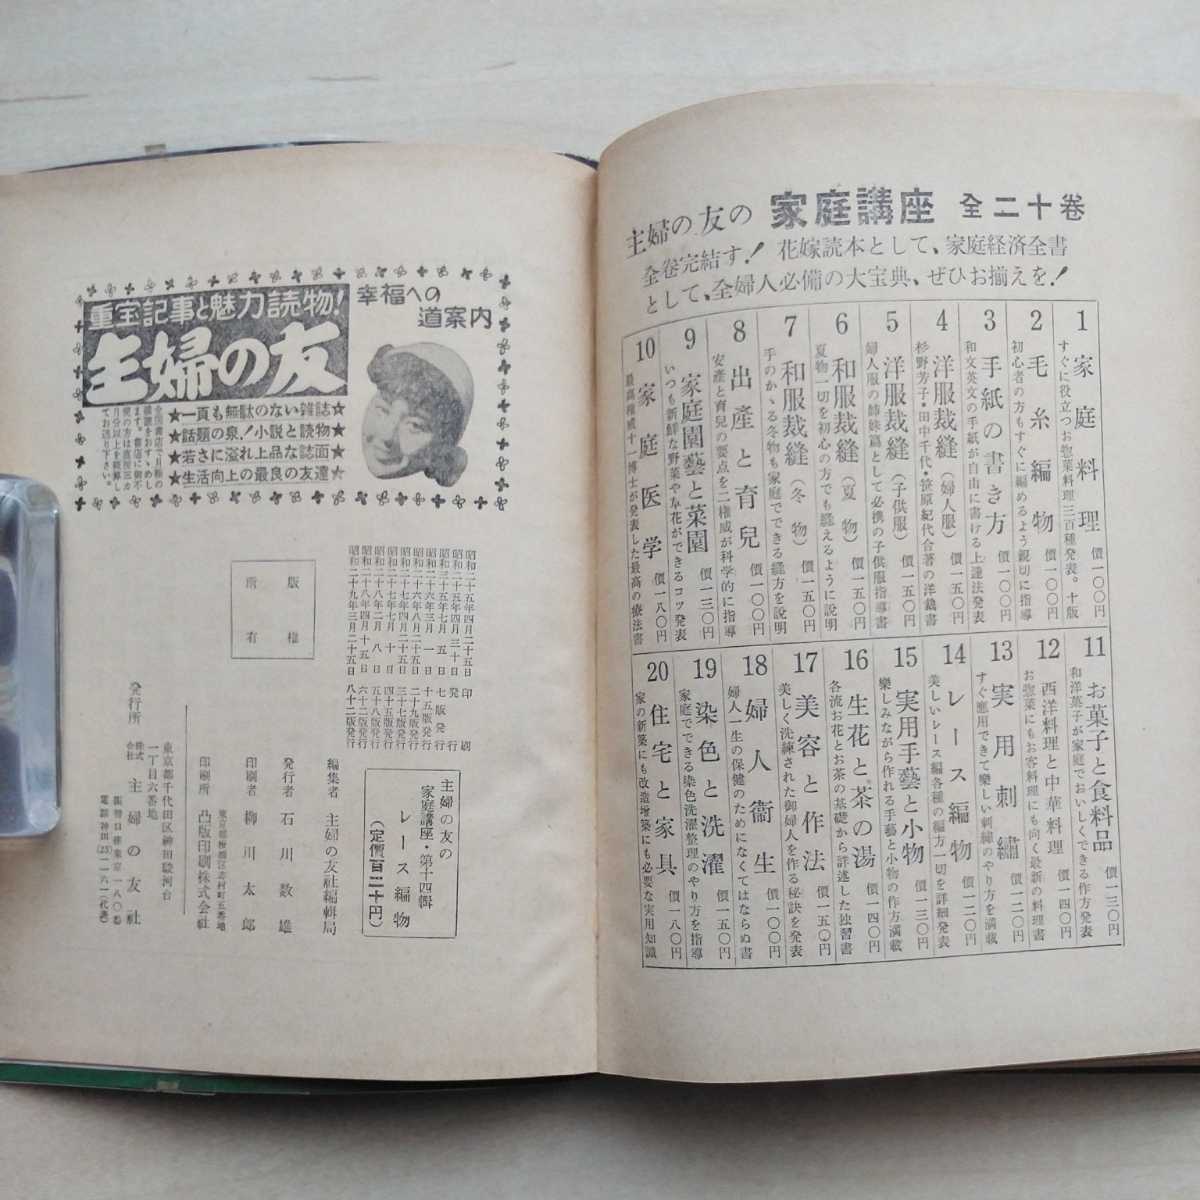 主婦の友の 家庭講座 全二十巻
全巻完結す！ 花嫁読本として、家庭経済全書
として、全婦人必備の大宝典、ぜひお揃えを！
1 家庭料理 價一〇〇円
すぐに役立つお惣菜料理三百種発表。十版
2 毛糸編物 價一〇〇円
初心者の方もすぐに編めるよう親切に指導
3 手紙の書き方 價一〇〇円
和文英文の手紙が自由に書ける上達法発表
4 洋服裁縫（婦人服） 價一五〇円
杉野芳子・田中千代・笹原紀代合著の洋裁書
5 洋服裁縫（子供服） 價一五〇円
婦人服の姉妹篇として必携の子供服指導書
6 和服裁縫（夏物） 價一五〇円
夏物一切を初心の方でも縫えるように説明
7 和服裁縫（冬物） 價一五〇円
手のかゝる冬物も家庭でできる縫方を説明
8 出産と育兒 價一〇〇円
安産と育兒の要点を二權威が科学的に指導
9 家庭園藝と菜園 價一三〇円
いつも新鮮な野菜や草花ができるコツ発表
10 家庭医学 價一八〇円
最高権威十一博士が発表した最高の療法書
11 お菓子と食料品 價一三〇円
和洋菓子が家庭でおいしくできる作方発表
12 西洋料理と中華料理 價一四〇円
お惣菜にもお客料理にも向く最新の料理書
13 実用刺繡 價一二〇円
すぐ應用できて樂しい刺繡のやり方を満載
14 レース編物 價一二〇円
美しいレース編各種の編方一切を詳細発表
15 実用手藝と小物 價一三〇円
樂しみながら作れる手藝と小物の作方満載
16 生花と茶の湯 價一四〇円
各流お花とお茶の基礎から詳述した独習書
17 美容と作法 價一五〇円
美しく洗練された御婦人を作る秘訣を発表
18 婦人衞生 價一〇〇円
婦人一生の保健のためになくてはならぬ書
19 染色と洗濯 價一三〇円
家庭でできる染色洗濯整理のやり方を指導
20 住宅と家具 價一八〇円
家の新築にも改造増築にも必要な実用知識
幸福への
道案内
重宝記事と魅力読物！
主婦の友
★一頁も無駄のない雑誌★
★話題の泉！小説と読物★
★若さに溢れ上品な誌面★
★生活向上の最良の友達★
昭和二十五年四月二十五日 印刷
昭和二十五年四月三十日 発行
昭和二十六年三月一日 十五版発行
昭和二十六年八月二十五日 二十九版発行
昭和二十七年四月二十五日 三十七版発行
昭和二十七年七月十日 四十五版発行
昭和二十八年二月八日 五十八版発行
昭和二十八年四月十五日 六十二版発行
昭和二十九年三月二十五日 八十二版発行
版権
所有
主婦の友の
家庭講座・第十四輯
レース編物
（定價百二十円）
編集者 主婦の友社編輯局
発行者 石川数雄
印刷者 柳川太郎
東京都板橋区志村町五番地
印刷所 凸版印刷株式会社
東京都千代田区神田駿河台
一丁目六番地
発行所 株式会社 主婦の友社
振替口座東京一八〇番
電話神田(25)一一六一(代表)